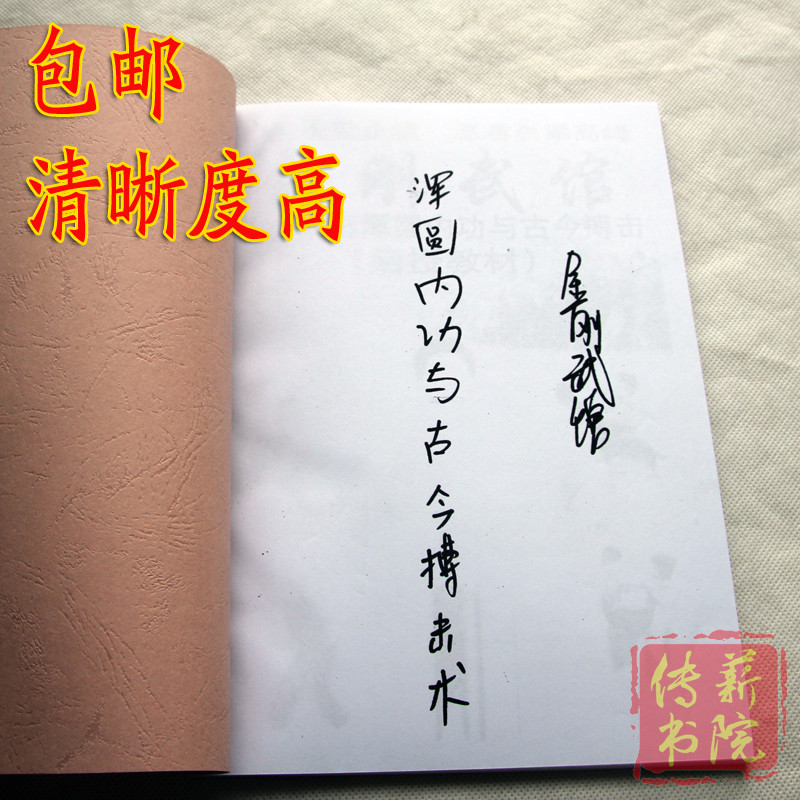 包邮
清晰度高
浑圓内功与古今搏击术
刚武馆
传薪
书院